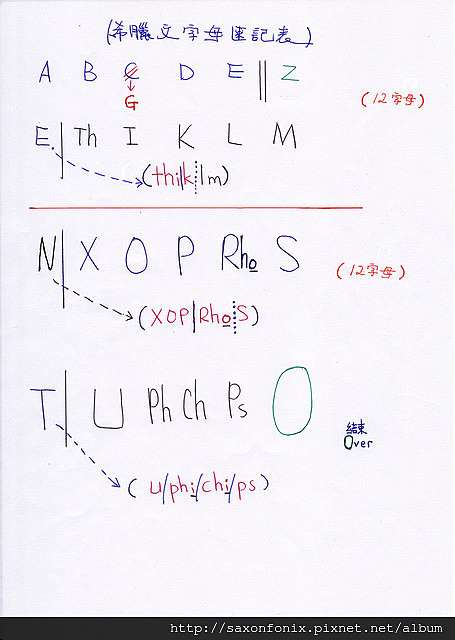 (希臘文字母速記表)
A B C D E || Z
↓
G
(12字母)
E | Th I K L M
(thi|k┊lm)
N | X O P Rho S
(12字母)
(XOP|Rho┊S)
T | U Ph Ch Ps O
結束
Over
(u/phi/chi/ps)
http://saxonfonix.pixnet.net/album